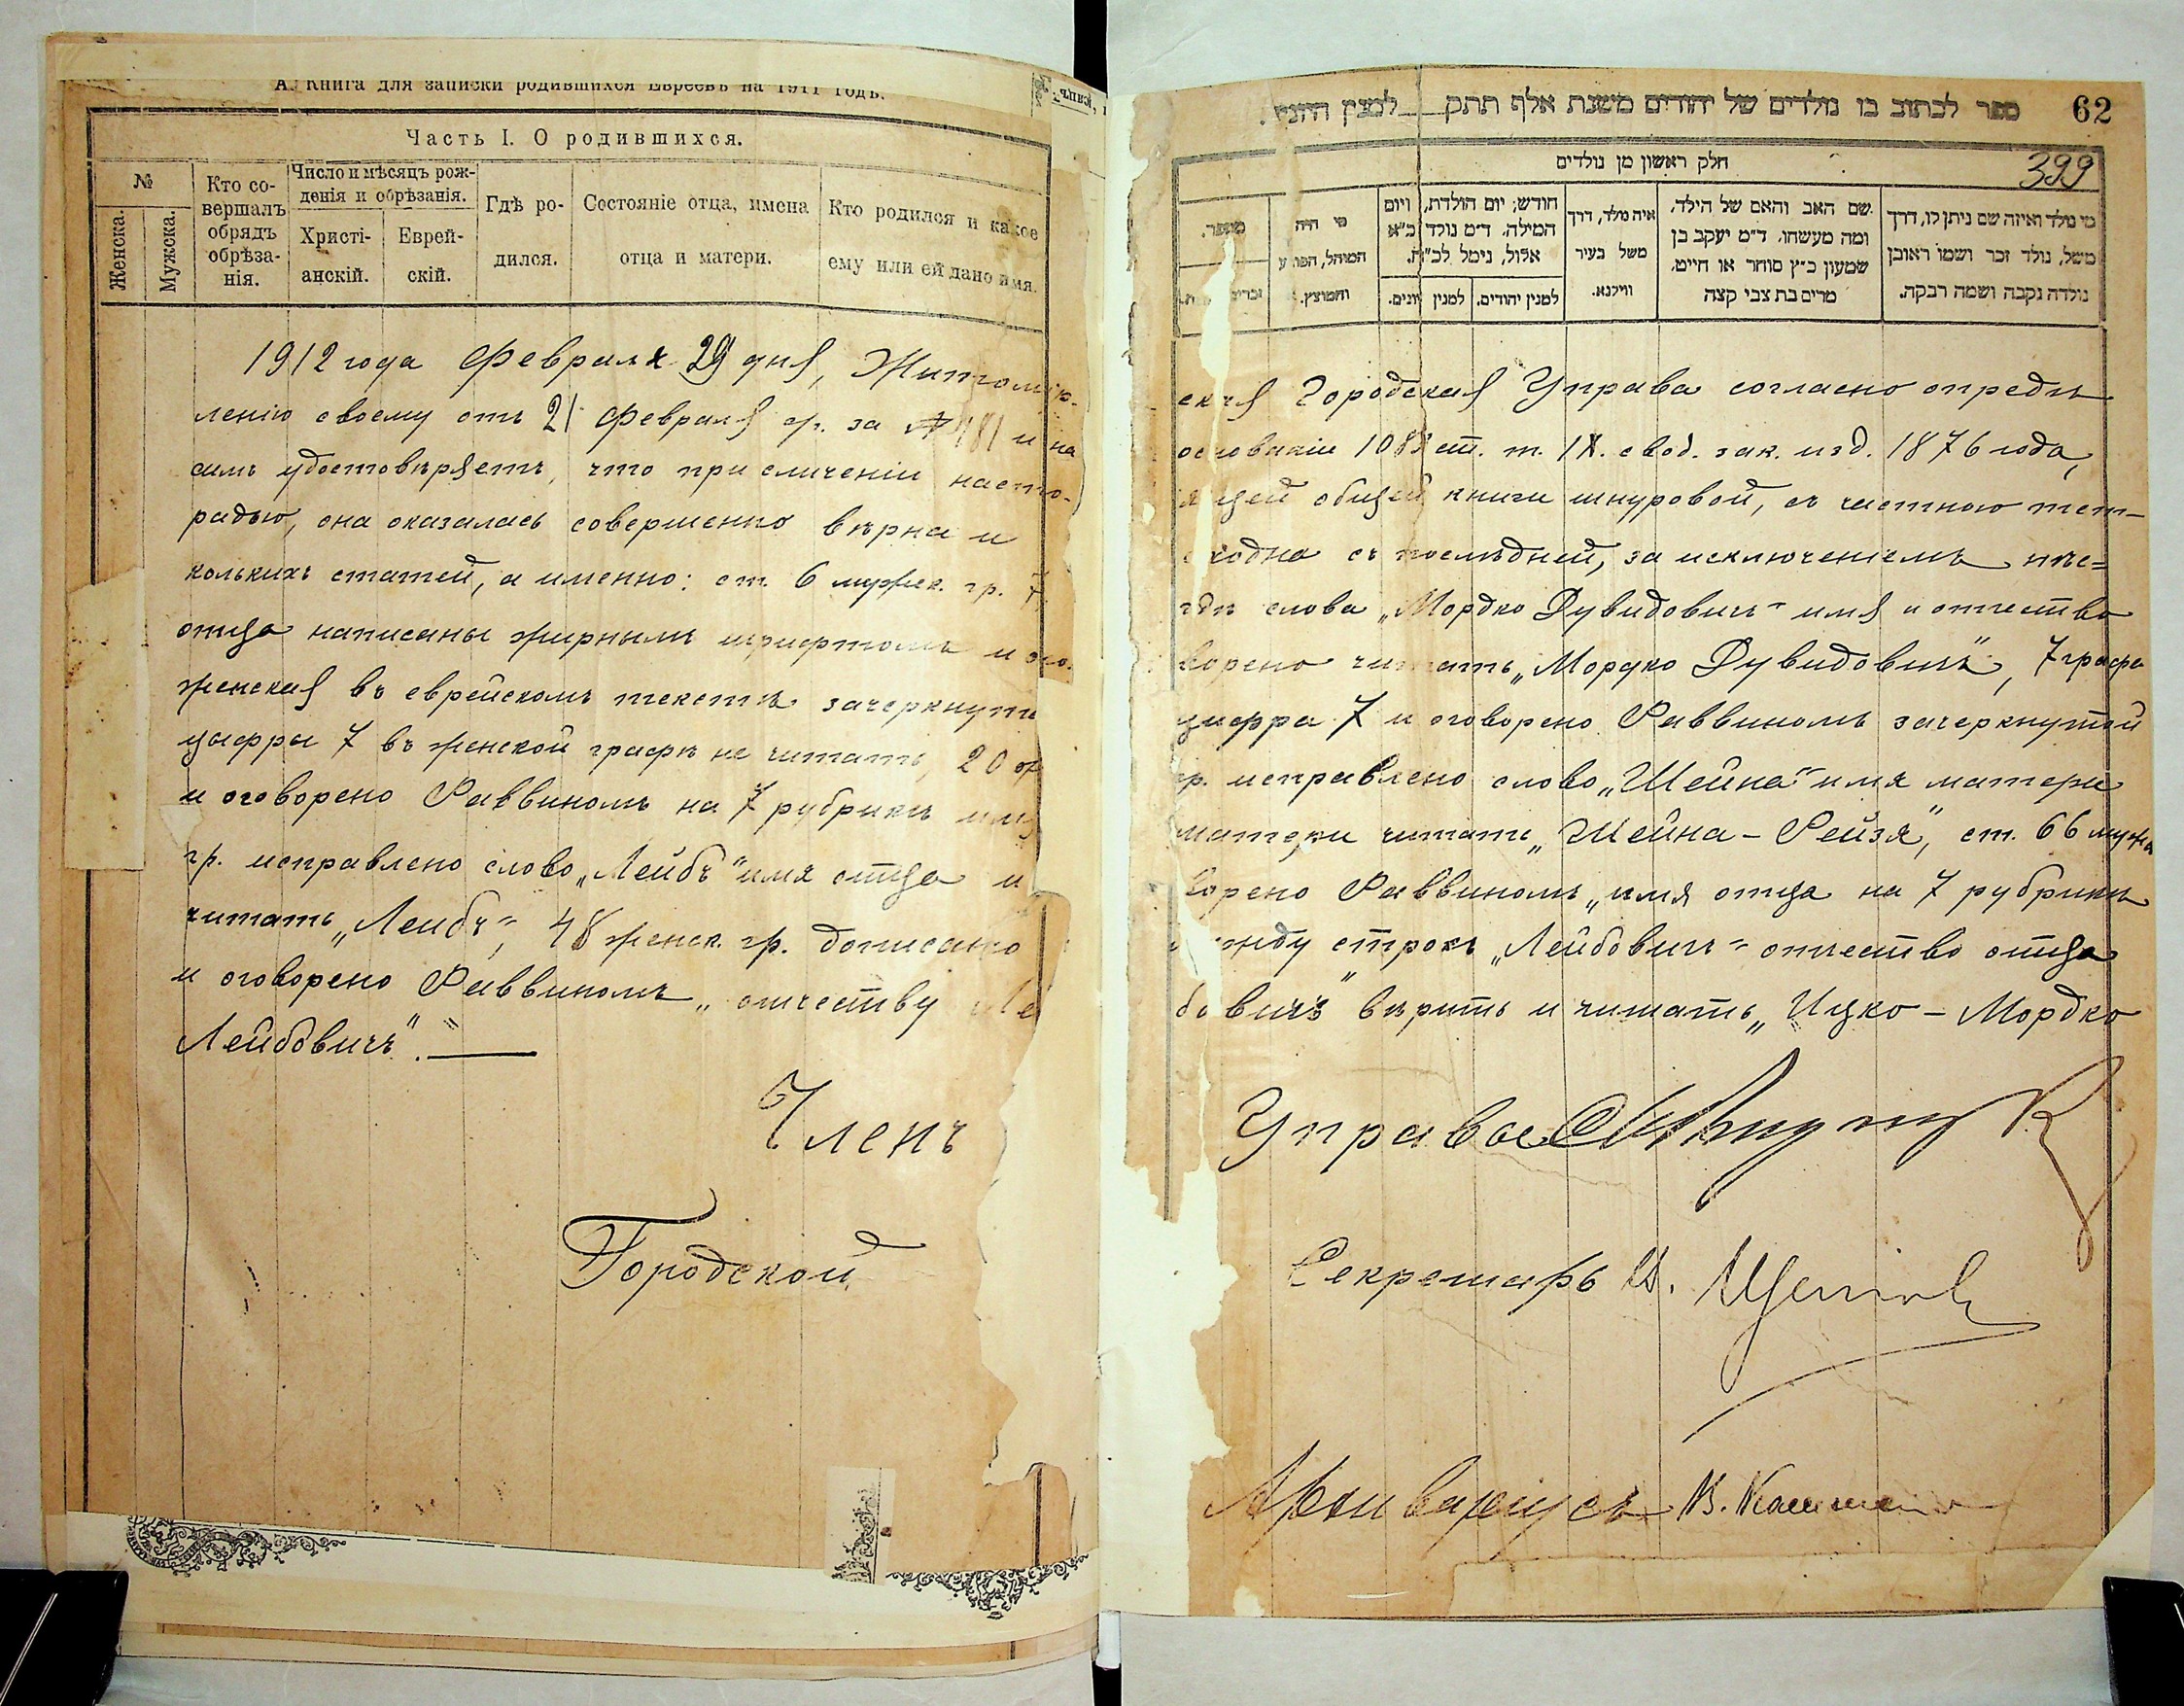 А. Книга для записки родившихся Евреевъ на 1911 годъ.
Часть I. О родившихся.
№
Женска.
Мужска.
Кто со-
вершалъ
обрядъ
обрѣза-
нія.
Число и мѣсяцъ рож-
денія и обрѣзанія.
Христі-
анскій.
Еврей-
скій.
Гдѣ ро-
дился.
Состояніе отца, имена
отца и матери.
Кто родился и какое
ему или ей дано имя.
1912 года Февраля 29 дня, Житомір-
ленію своему отъ 21 Февраля с/г. за № 481 и на
симъ удостовѣряетъ, что при сличеніи насто-
радью, она оказалась совершенно вѣрна и
колькихъ статей, а именно: ст. 6 мужск. гр. 7
отца написаны жирнымъ шрифтомъ и ого-
женская въ еврейскомъ текстѣ зачеркнута
цифры 7 въ женской графѣ не читать, 20
и оговорено Раввиномъ на 7 рубрикѣ имя
гр. исправлено слово „Лейбъ" имя отца и
читать „Лейбъ", 48 женск. гр. дописано
и оговорено Раввиномъ „отчеству Ле
Лейбовичъ".
Членъ
Городской
62
ספר לכתוב בו נולדים של יהודים משנת אלף תתק למנין היוני.
399
חלק ראשון מן נולדים
מי מלד ואיזה שם ניתן לו, דרך
משל, נולד זכר ושמו ראובן
נולדה נקבה ושמה רבקה.
שם האב והאם של הילד,
ומה מעשהו. ד״מ יעקב בן
שמעון כ״ץ סוחר או חייט.
מרים בת צבי קצה
איה מלד, דרך
משל בעיר
ווילנא.
חודש; יום הולדת, ויום
המילה. ד״מ נולד כ״א
אלול, נימל לכ״ח.
למנין יהודים.
למנין יונים.
מי היה
המוהל, הפורע
והמוצץ.
מספר.
ская Городская Управа согласно опредѣ
основаніи 1083 ст. т. IX. свод. зак. изд. 1876 года,
ящей общей книги шнуровой, съ частною тет-
сходна съ послѣдней, за исключеніемъ нѣс=
гдѣ слова „Мордко Дувидовичъ" имя и отчество
ворено читать „Мордко Дувидовичъ", 7 графа
цифра 7 и оговорено Раввиномъ зачеркнутой
гр. исправлено слово „Шейна" имя матери
матери читать „Шейна-Рейзя", ст. 66 мужс
ворено Раввиномъ „имя отца на 7 рубрикѣ
между строкъ „Лейбовичъ" отчество отца
бовичъ" вѣрить и читать „Ицко-Мордко
Управы
Секретарь И.
Архиваріусъ В.